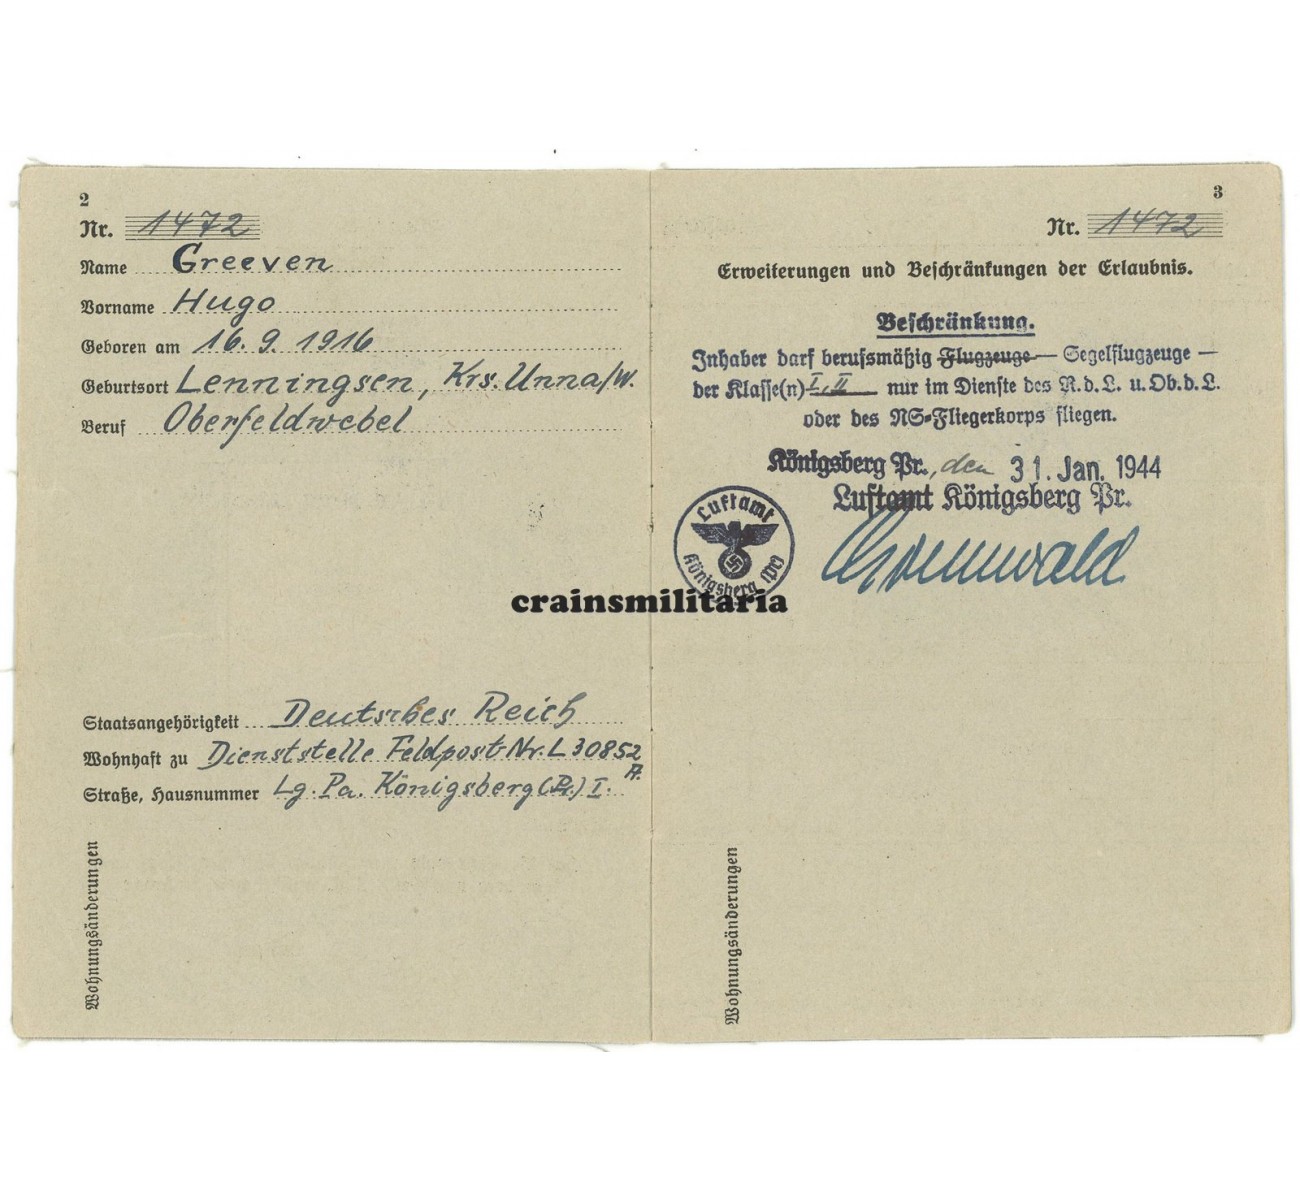 2
Nr. 1472
Name Greeven
Vorname Hugo
Geboren am 16. 9. 1916
Geburtsort Lenningsen, Krs. Unna/W.
Beruf Oberfeldwebel
Staatsangehörigkeit Deutsches Reich
Wohnhaft zu Dienststelle Feldpost-Nr. L 30852
A.
Straße, Hausnummer Lg. Pa. Königsberg (Pr.) I.
Wohnungsänderungen
3
Nr. 1472
Erweiterungen und Beschränkungen der Erlaubnis.
Beschränkung.
Inhaber darf berufsmäßig Flugzeuge — Segelflugzeuge —
der Klasse(n) I, II nur im Dienste des R.d.L. u. Ob.d.L.
oder des NS-Fliegerkorps fliegen.
Königsberg Pr., den 31. Jan. 1944
Luftamt Königsberg Pr.
Luftamt
Königsberg (Pr)
crainsmilitaria
Wohnungsänderungen